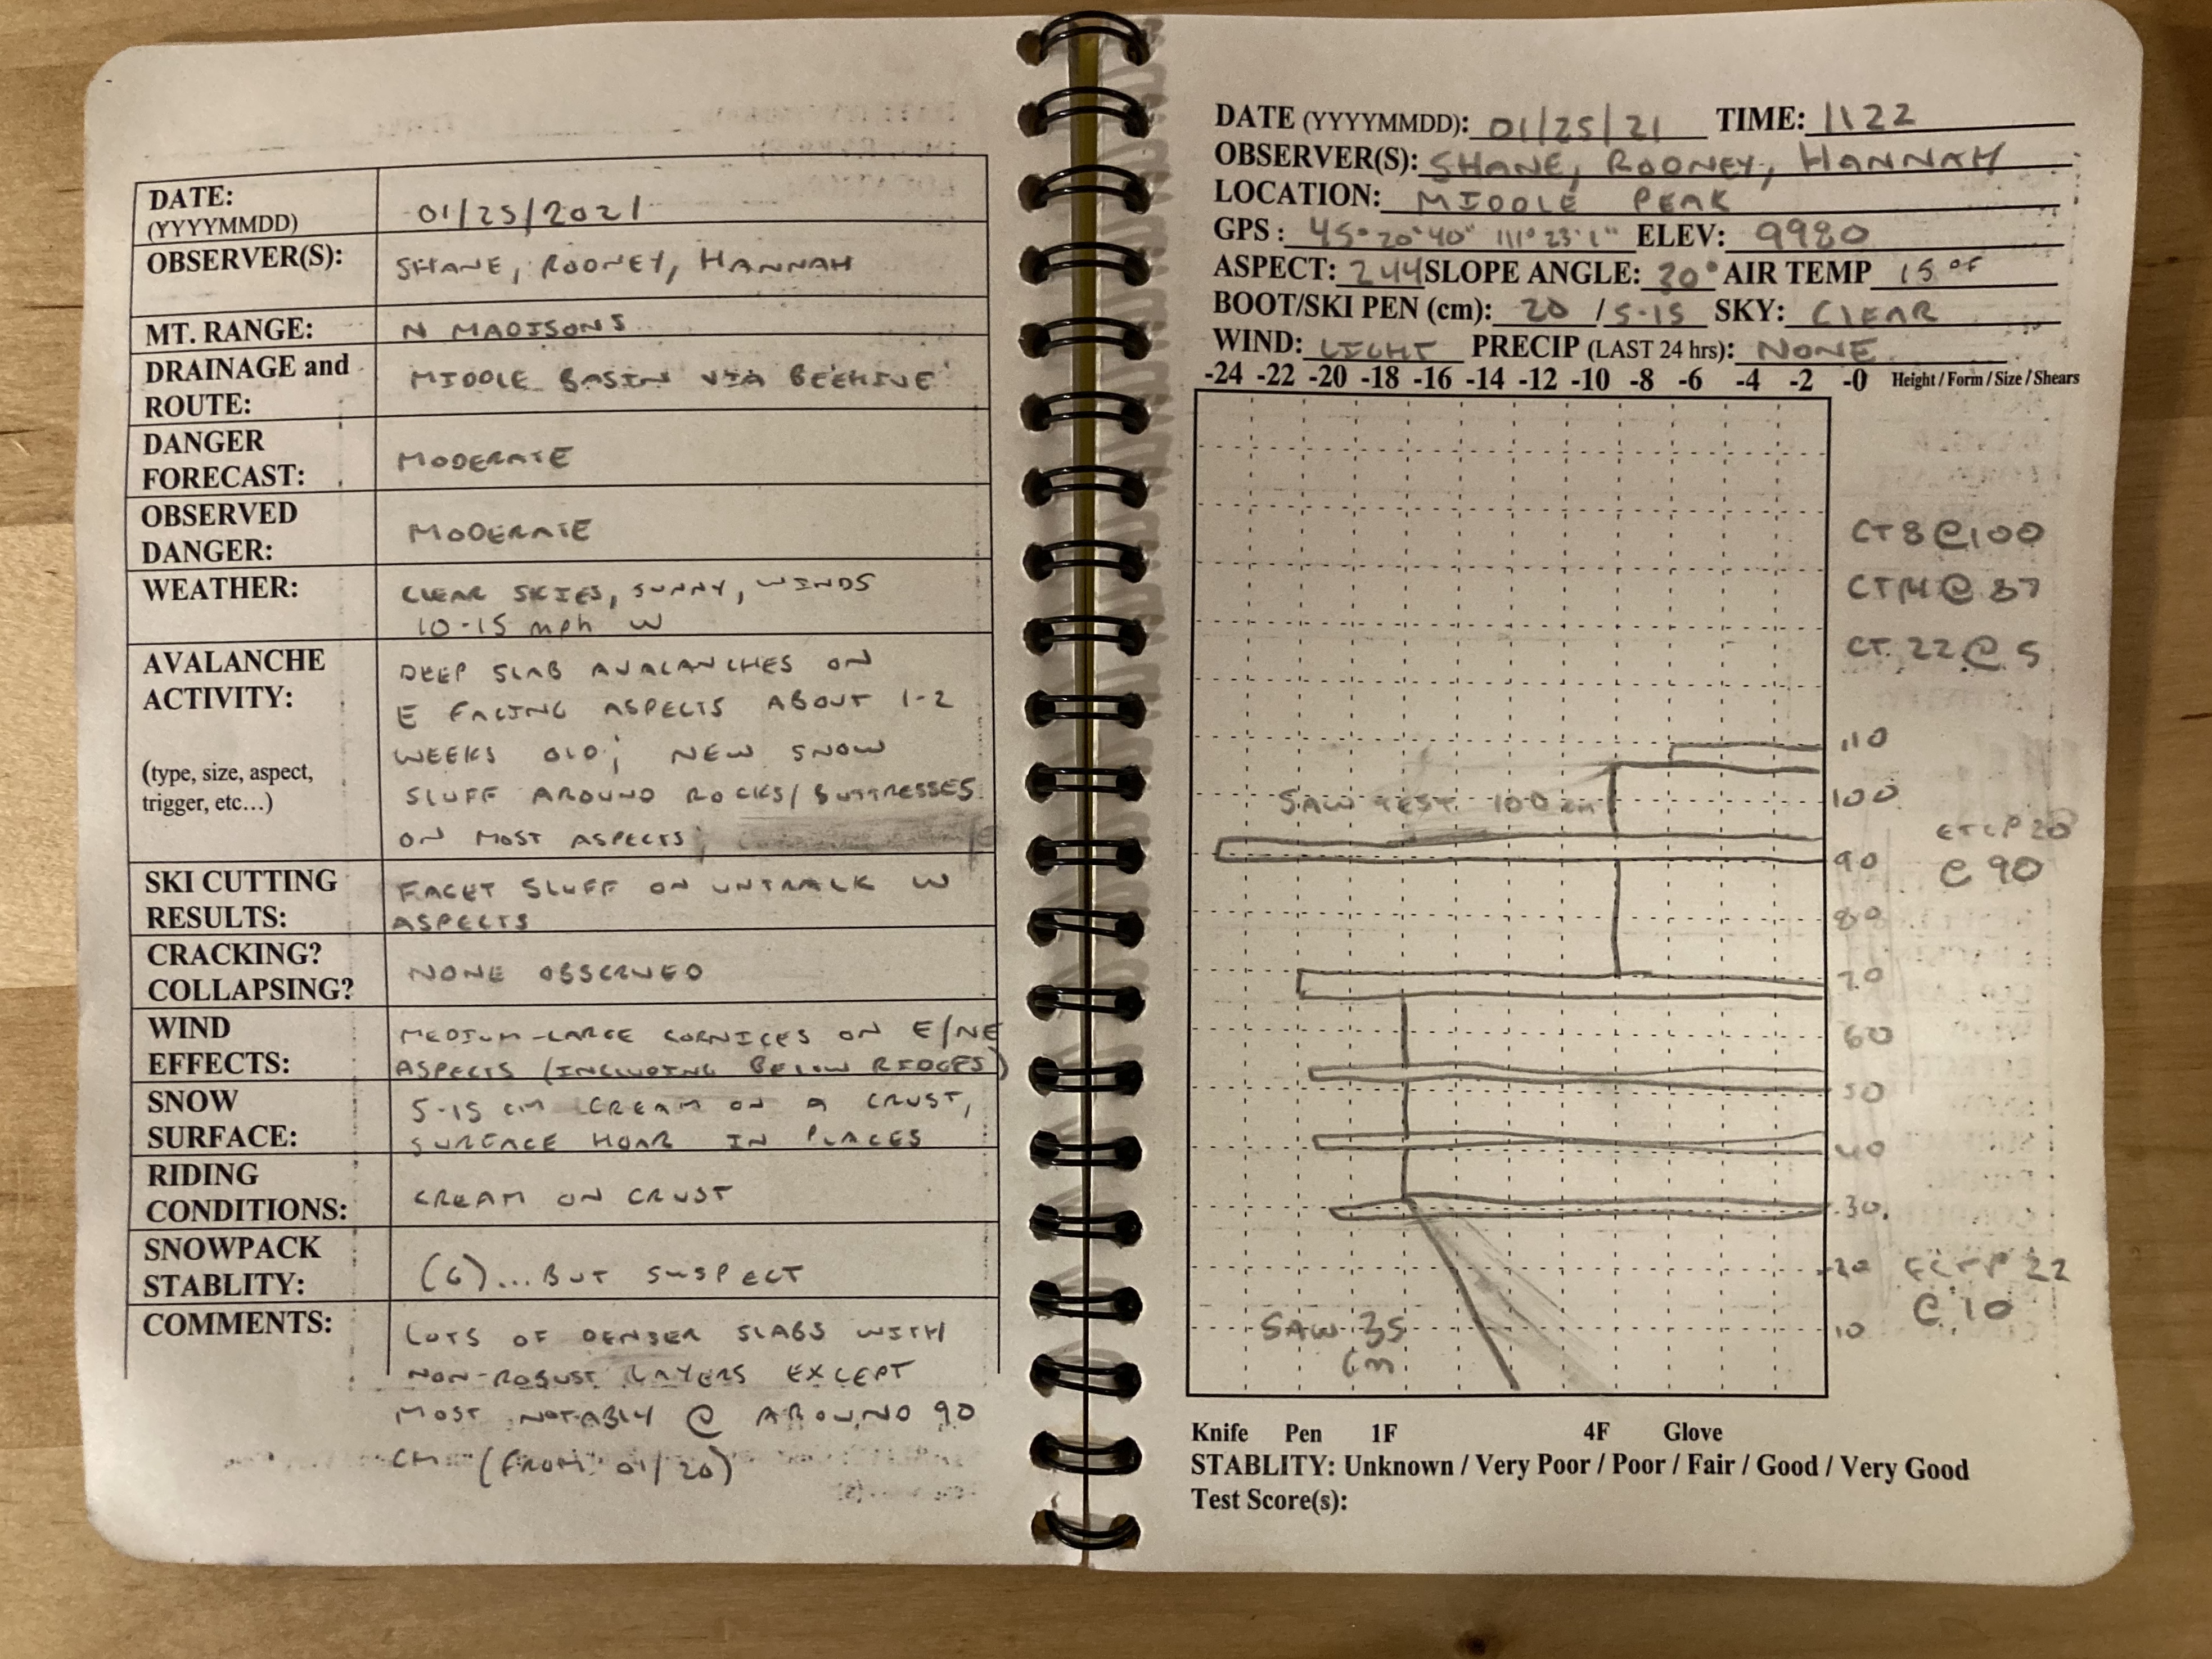 DATE: 01/25/2021
(YYYYMMDD)
OBSERVER(S): SHANE, ROONEY, HANNAH
MT. RANGE: N MADISONS
DRAINAGE and MIDDLE BASIN VIA BEEHIVE
ROUTE:
DANGER MODERATE
FORECAST:
OBSERVED MODERATE
DANGER:
WEATHER: CLEAR SKIES, SUNNY, WINDS
10-15 mph W
AVALANCHE DEEP SLAB AVALANCHES ON
ACTIVITY: E FACING ASPECTS ABOUT 1-2
WEEKS OLD; NEW SNOW
(type, size, aspect, SLUFF AROUND ROCKS/BUTTRESSES
trigger, etc...) ON MOST ASPECTS;
SKI CUTTING FACET SLUFF ON UNTRACK W
RESULTS: ASPECTS
CRACKING? NONE OBSERVED
COLLAPSING?
WIND MEDIUM-LARGE CORNICES ON E/NE
EFFECTS: ASPECTS (INCLUDING BELOW RIDGES)
SNOW 5-15 cm CREAM ON A CRUST,
SURFACE: SURFACE HOAR IN PLACES
RIDING CREAM ON CRUST
CONDITIONS:
SNOWPACK (G)...BUT SUSPECT
STABLITY:
COMMENTS: LOTS OF DENSER SLABS WITH
NON-ROBUST LAYERS EXCEPT
MOST NOTABLY @ AROUND 90
CM (FROM 01/20)
DATE (YYYYMMDD): 01/25/21 TIME: 1122
OBSERVER(S): SHANE, ROONEY, HANNAH
LOCATION: MIDDLE PEAK
GPS: 45° 20' 40" 111° 23' 1" ELEV: 9980
ASPECT: 244 SLOPE ANGLE: 30° AIR TEMP 15 °F
BOOT/SKI PEN (cm): 20 / 5-15 SKY: CLEAR
WIND: LIGHT PRECIP (LAST 24 hrs): NONE
-24 -22 -20 -18 -16 -14 -12 -10 -8 -6 -4 -2 -0 Height / Form / Size / Shears
CT8@100
CT14@87
CT 22@5
110
SAW TEST 100 cm 100
ETCP 20
90 @ 90
80
70
60
50
40
30
20 ECTP 22
@ 10
SAW 35 10
cm
Knife Pen 1F 4F Glove
STABLITY: Unknown / Very Poor / Poor / Fair / Good / Very Good
Test Score(s):